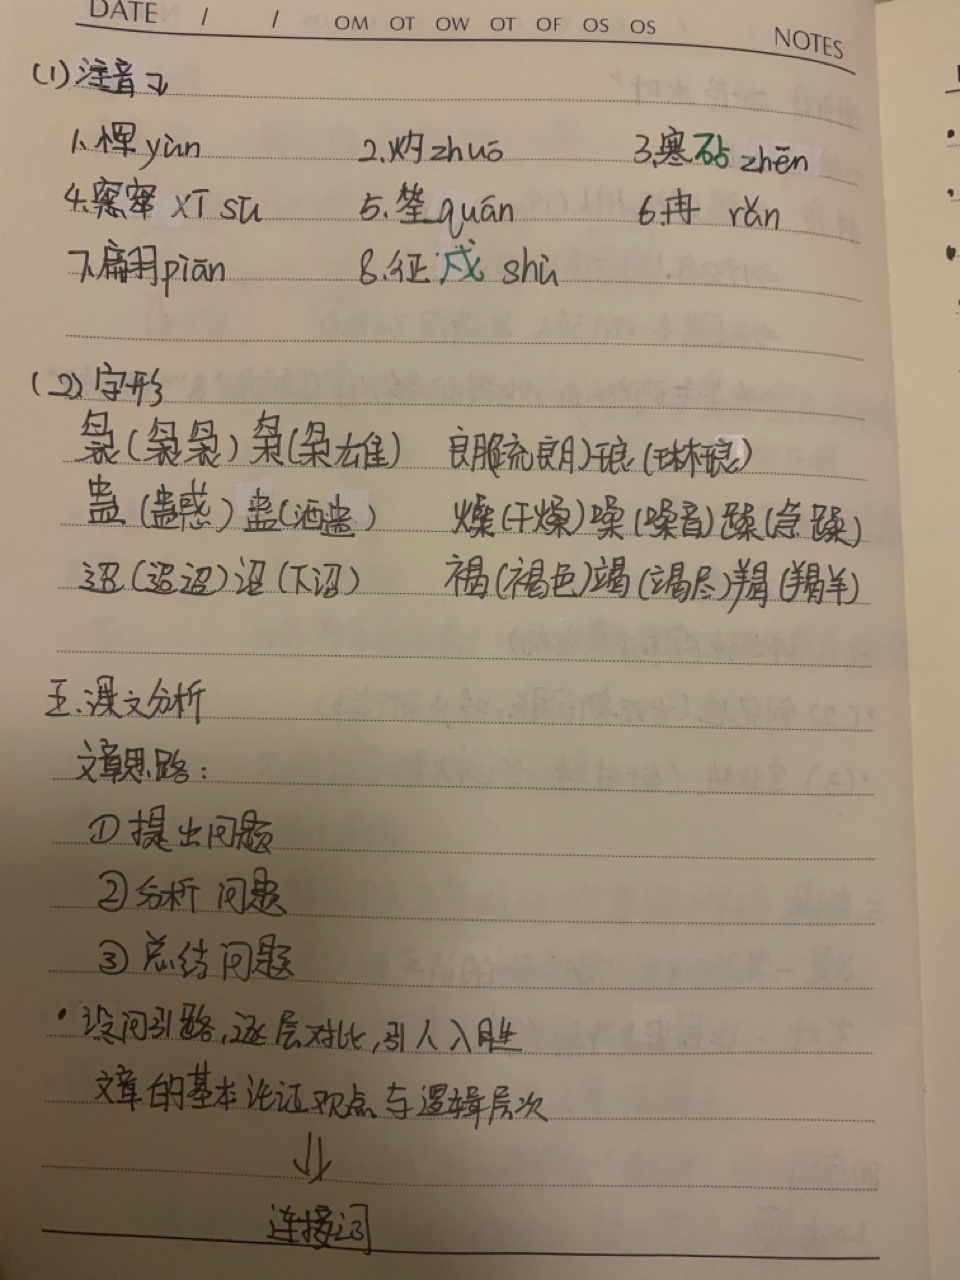 DATE / / OM OT OW OT OF OS OS NOTES
(1)注音
1.恽 yùn 2.灼 zhuó 3.寒砧 zhēn
4.窸窣 xī sū 5.荃 quán 6.冉 rǎn
7.翩 piān 8.征戍 shù
(2)字形
袅(袅袅) 枭(枭雄) 朗)琅(琳琅)
蛊(蛊惑) 盅(酒盅) 燥(干燥)噪(噪音)躁(急躁)
迢(迢迢)诏(下诏) 褐(褐色)竭(竭尽)羯(羯羊)
五.课文分析
文章思路:
①提出问题
②分析问题
③总结问题
·设问引路,逐层对比,引人入胜
文章的基本论证观点与逻辑层次
⇓
连接词